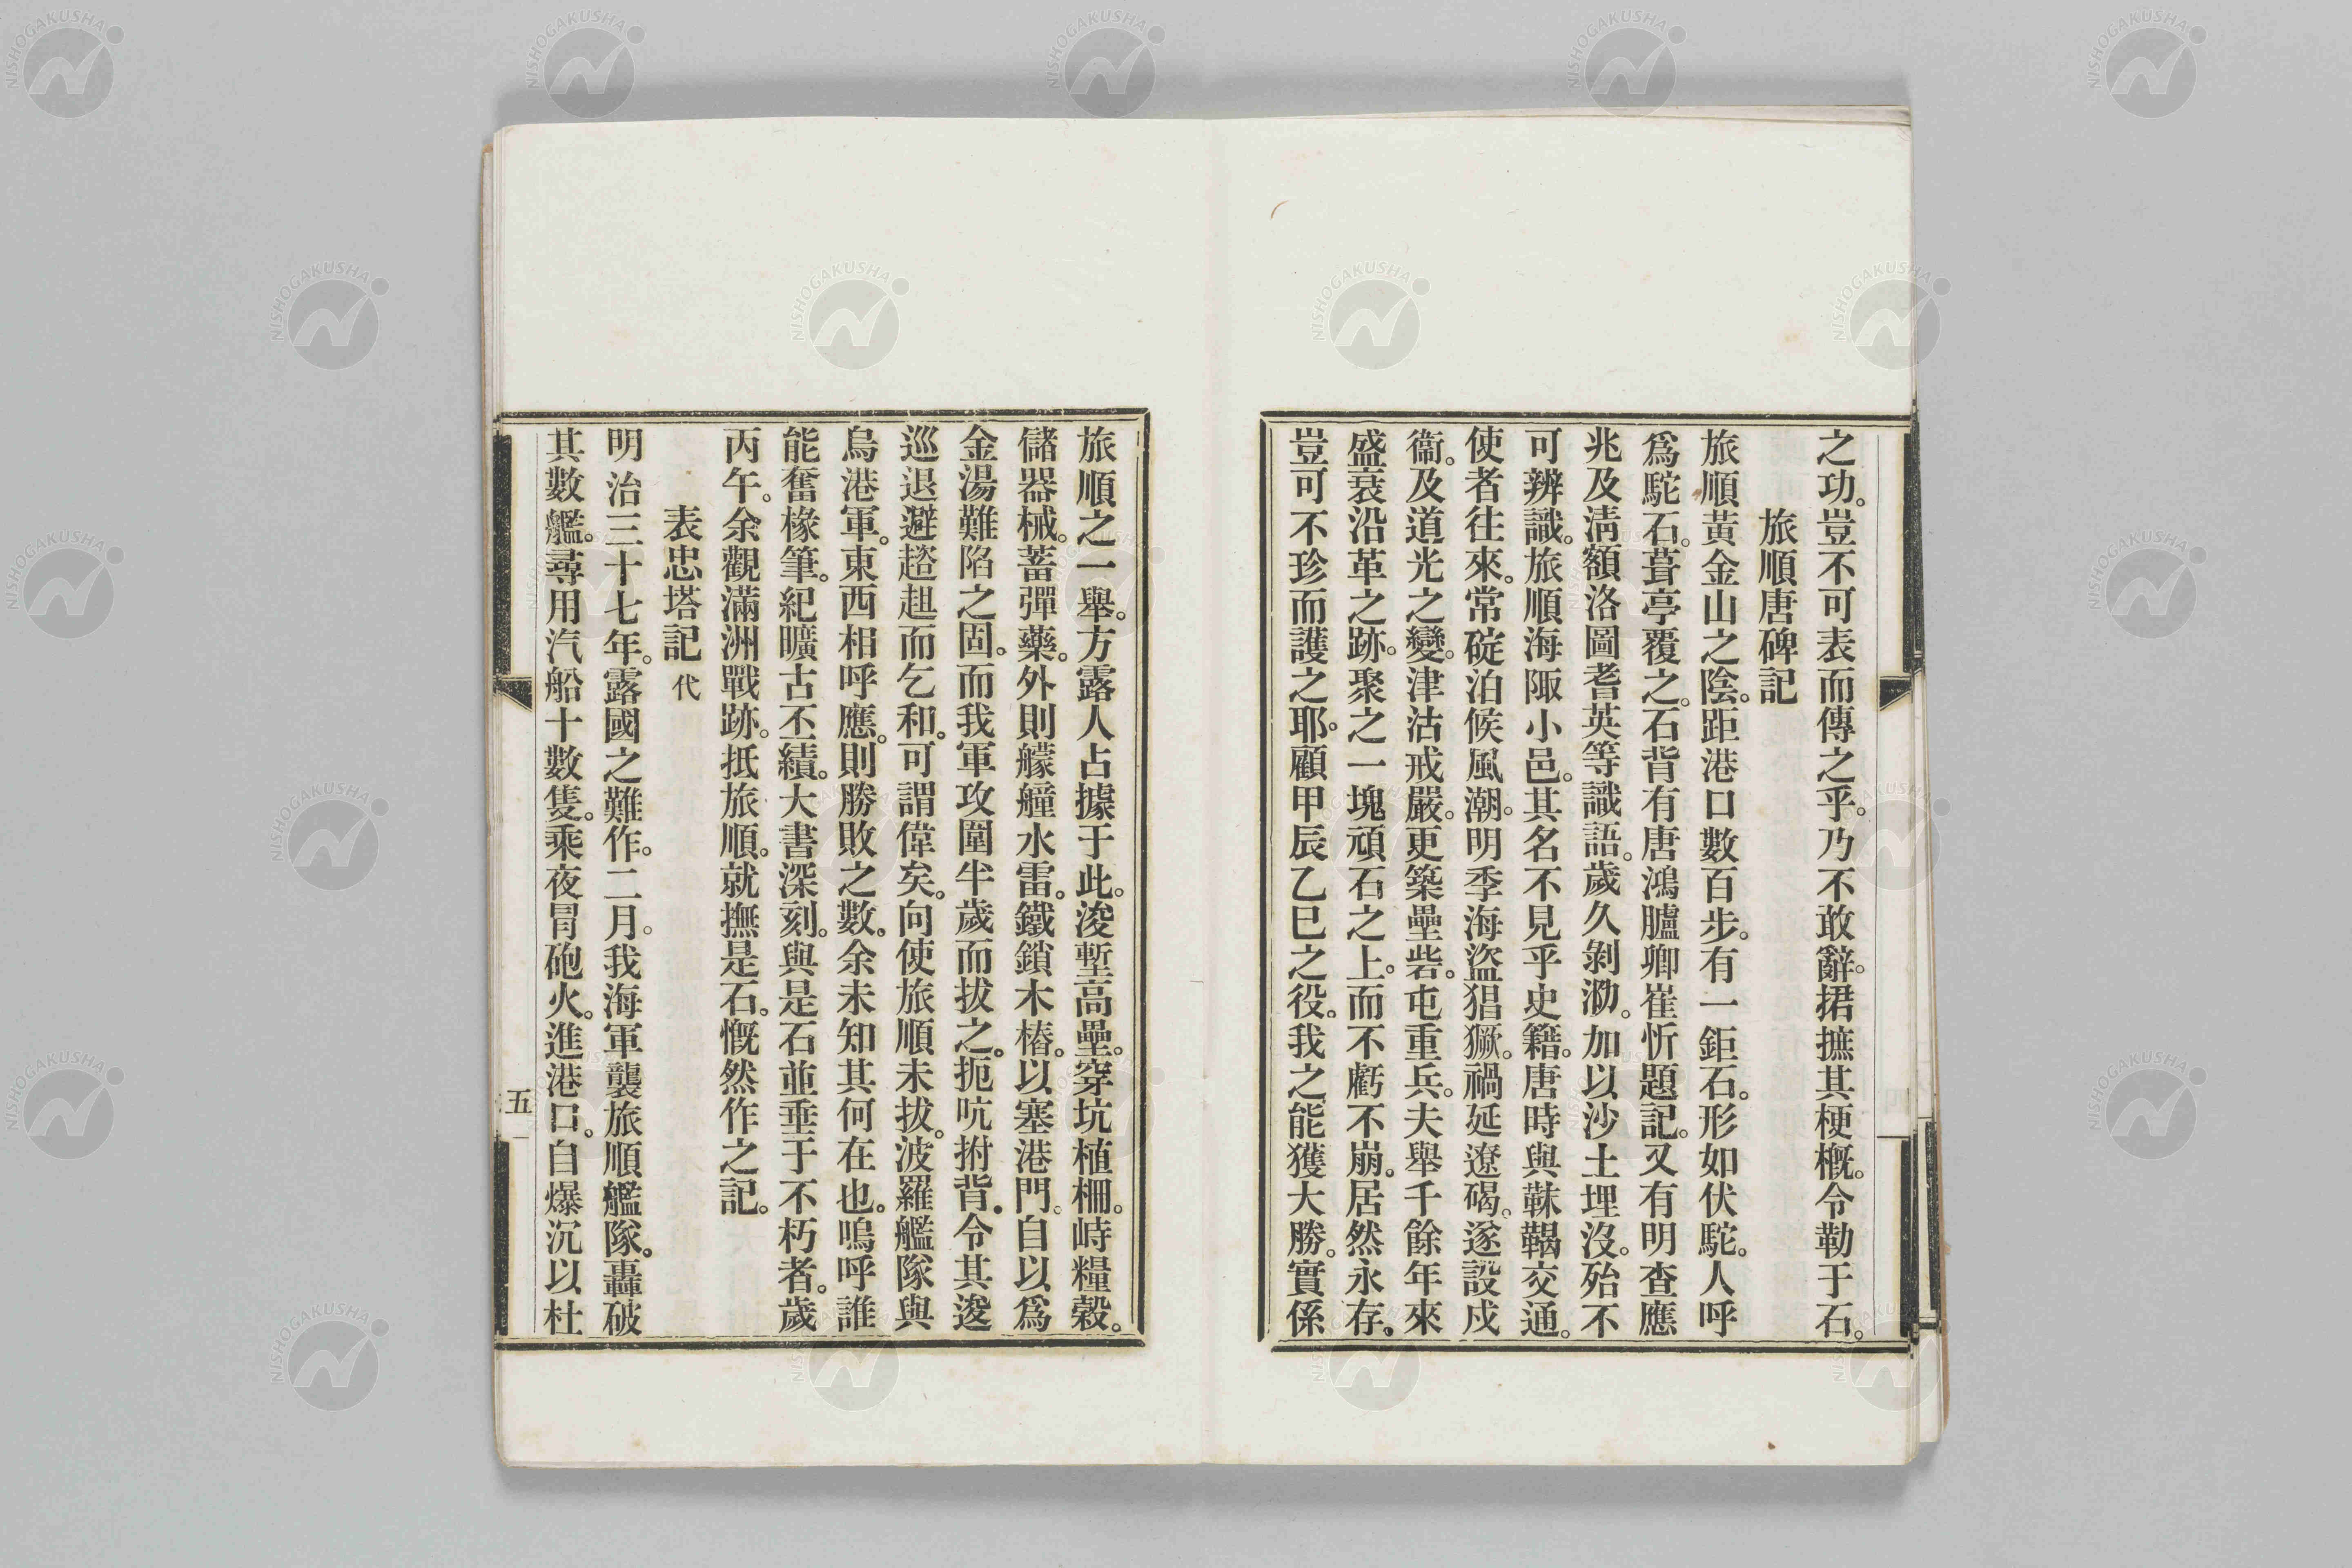 之功。豈不可表而傳之乎。乃不敢辭。捃摭其梗概。令勒于石。
旅順唐碑記
旅順黃金山之陰。距港口數百步。有一鉅石。形如伏駝。人呼
爲駝石。葺亭覆之。石背有唐鴻臚卿崔忻題記。又有明查應
兆及淸額洛圖耆英等識語。歲久剝泐。加以沙土埋沒。殆不
可辨識。旅順海陬小邑。其名不見乎史籍。唐時與靺鞨交通。
使者往來。常碇泊候風潮。明季海盜猖獗。禍延遼碣。遂設戍
衞。及道光之變。津沽戒嚴。更築壘砦。屯重兵。夫擧千餘年來
盛衰沿革之跡。聚之一塊頑石之上。而不虧不崩。居然永存。
豈可不珍而護之耶。顧甲辰乙巳之役。我之能獲大勝。實係
旅順之一擧。方露人占據于此。浚塹高壘。穿坑植柵。峙糧穀。
儲器械。蓄彈藥。外則艨艟水雷。鐵鎖木樁。以塞港門。自以爲
金湯難陷之固。而我軍攻圍半歲而拔之。扼吭拊背。令其逡
巡退避趦趄而乞和。可謂偉矣。向使旅順未拔。波羅艦隊與
烏港軍。東西相呼應。則勝敗之數。余未知其何在也。嗚呼誰
能奮椽筆。紀曠古丕績。大書深刻。與是石並垂于不朽者。歲
丙午。余觀滿洲戰跡。抵旅順。就撫是石。慨然作之記。
表忠塔記 代
明治三十七年。露國之難作。二月。我海軍襲旅順艦隊。轟破
其數艦。尋用汽船十數隻。乘夜冒砲火。進港口。自爆沉以杜
五
NISHOGAKUSHA